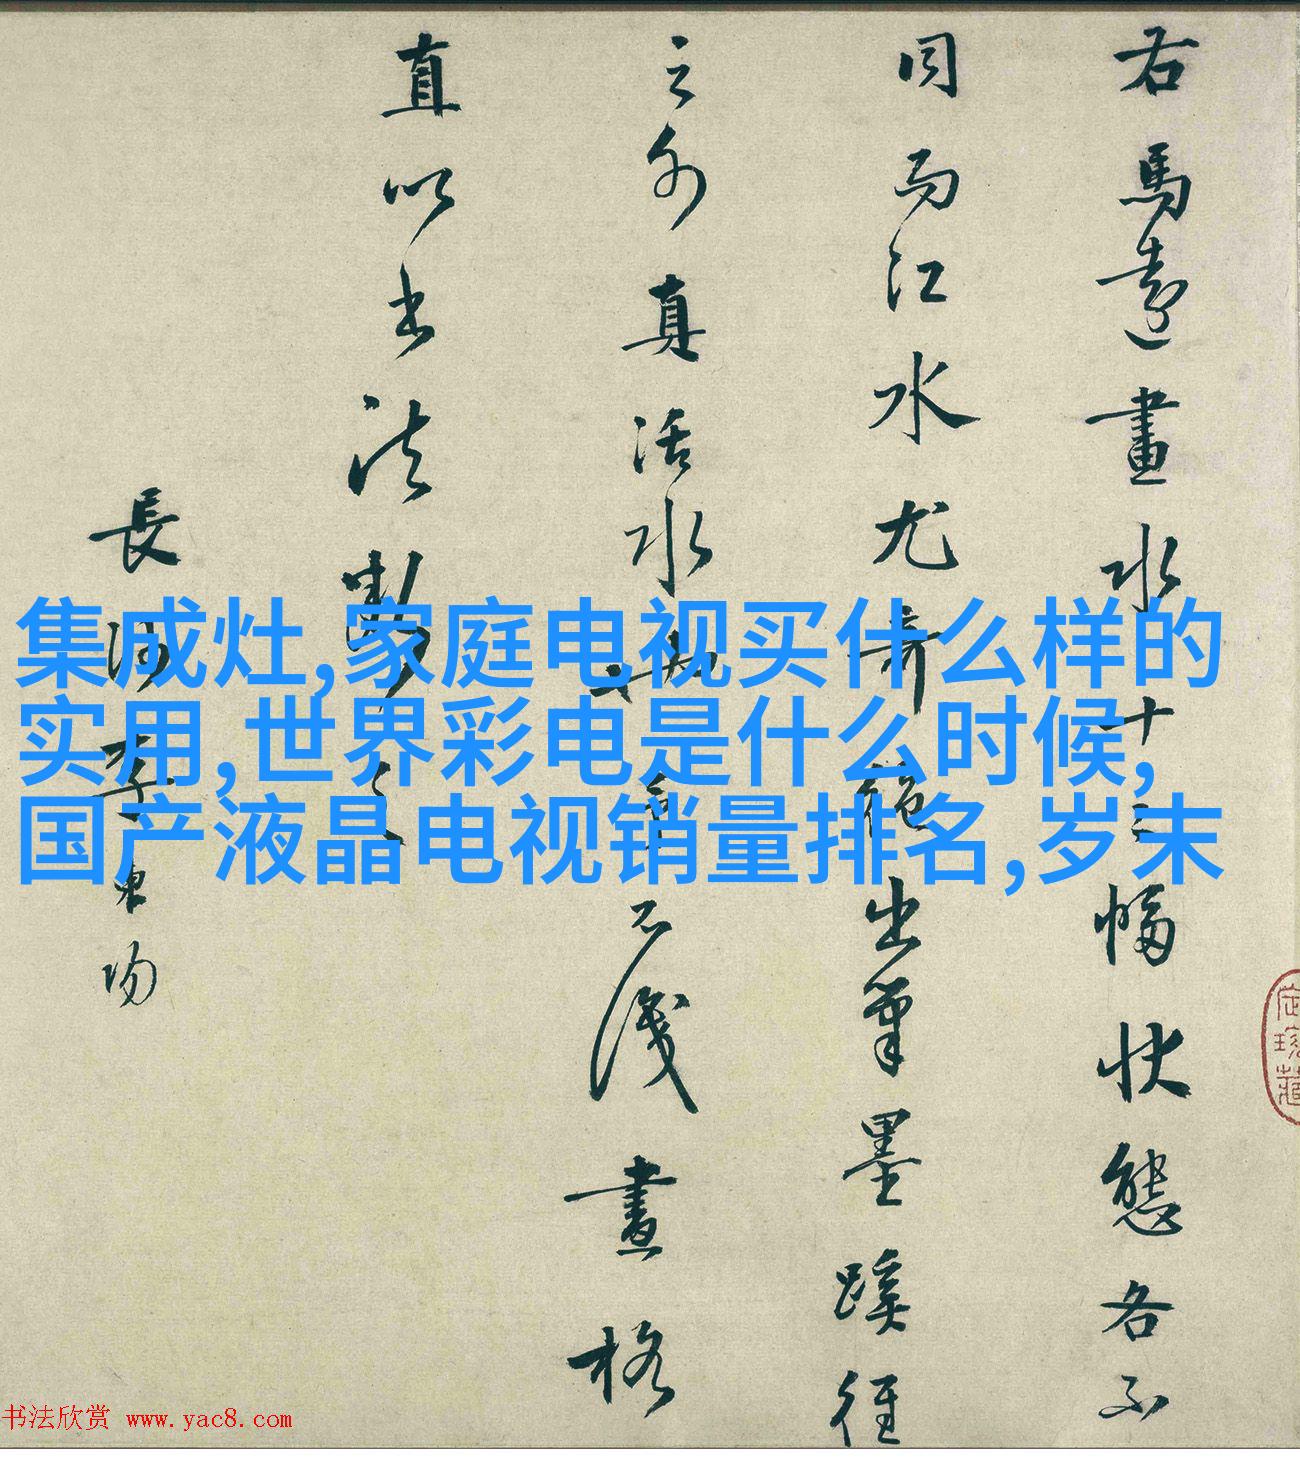 右馬遠畫水十二幅狀態各不
同而江水尤奇絕出筆墨蹊徑
之外真活水也不識畫格
直以書法斷之
長沙李東陽
集成灶,家庭电视买什么样的
实用,世界彩电是什么时候,
国产液晶电视销量排名,岁末
珍藏
书法欣赏 www.yac8.com